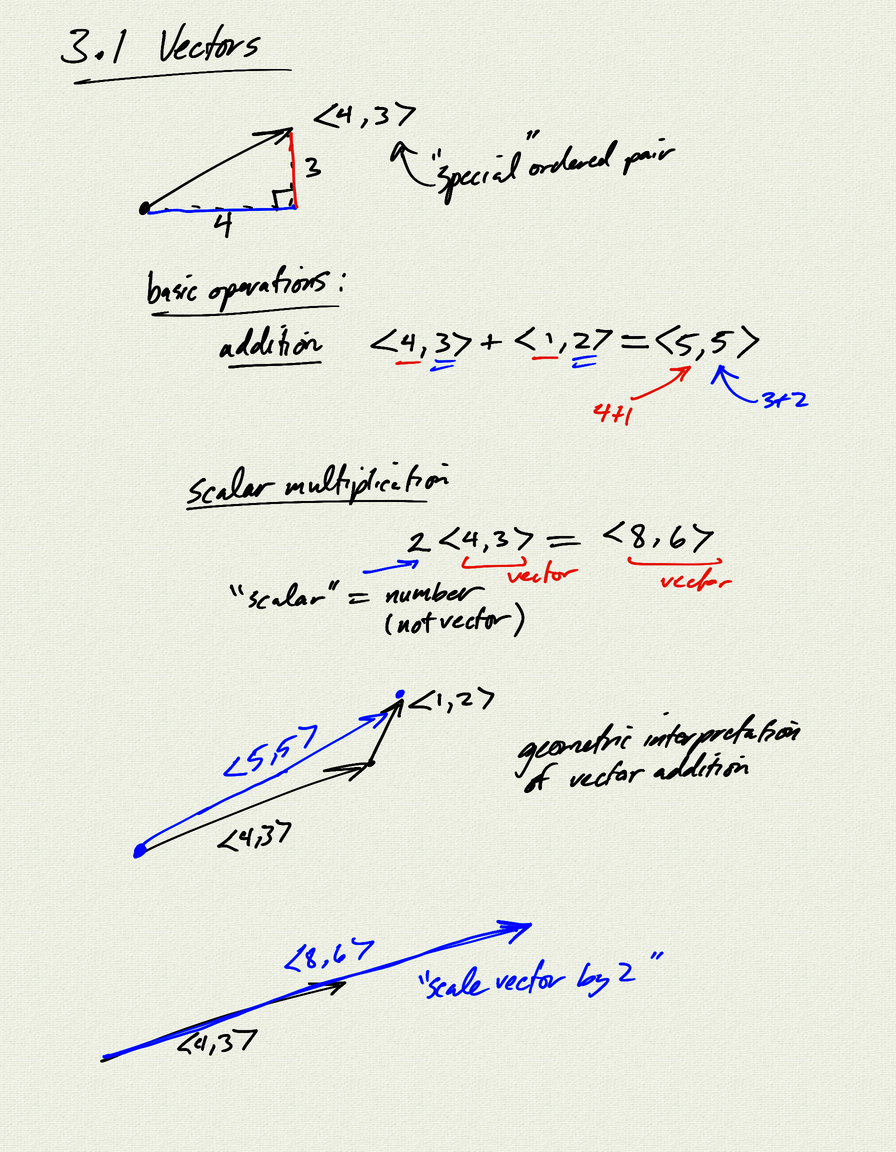 3.1 Vectors
<4,3>
"special" ordered pair
3
4
basic operations:
addition <4,3> + <1,2> = <5,5>
4+1 3+2
scalar multiplication
2<4,3> = <8,6>
vector vector
"scalar" = number
(not vector)
<1,2>
<5,5>
geometric interpretation
of vector addition
<4,3>
<8,6>
"scale vector by 2"
<4,3>